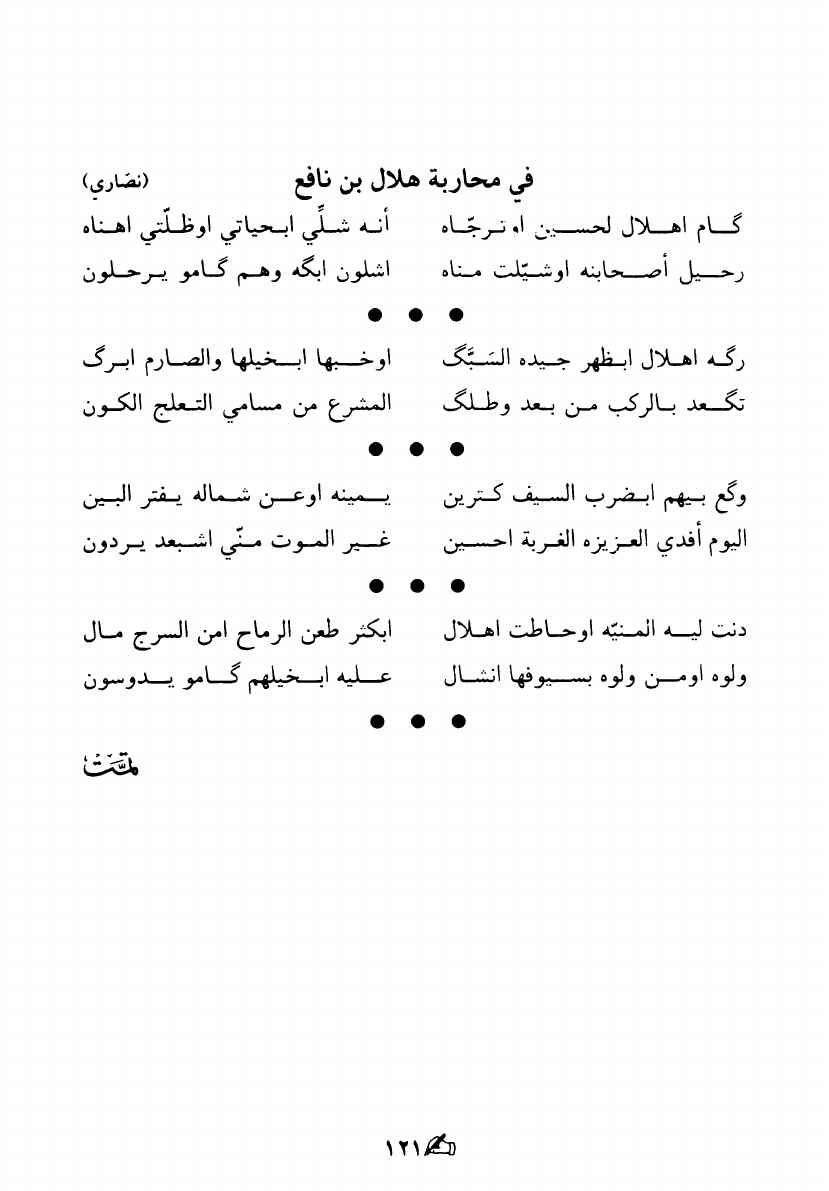 في محاربة هلال بن نافع (نصّاري)
گـام اهـلال لحسـين او ترجّـاه أنـه شلّي ابـحياتي اوظلّتي اهـناه
رحـيل أصـحابنه اوشيّلت مـناه اشلون ابگه وهـم گـامو يـرحـلون
● ● ●
رگـه اهـلال ابـظهر جـيده السَبَّگ اوخـبها ابـخيلها والصـارم ابـرگ
تگـعد بـالركب مـن بـعد وطـلگ المشرع من مسامي التـعلج الكـون
● ● ●
وگع بـيهم ابـضرب السـيف كـترين يـمينه اوعـن شماله يـفتر البـين
اليوم أفدي العـزيزه الغـربة احسـين غـير المـوت مـنّي اشـبعد يـردون
● ● ●
دنت ليـه المـنيّه اوحـاطت اهـلال ابكثر طعن الرماح امن السرج مـال
ولوه اومـن ولوه بسـيوفها انشـال عـليه ابـخيلهم گـامو يـدوسون
● ● ●
تمّت
١٢١